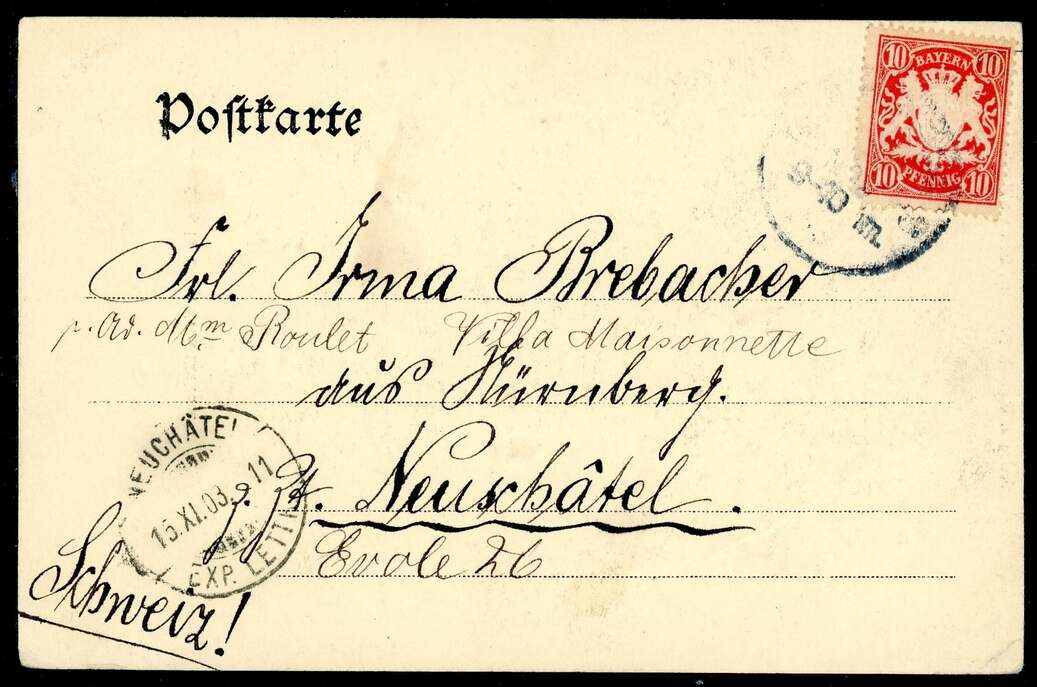 Postkarte
10 BAYERN 10
10 PFENNIG 10
9-10 m.
Frl. Irma Brebacher
p. Ad. Mm Roulet Villa Maisonnette
aus Nürnberg.
z. Zt. Neuschâtel.
Evole 26
Schweiz!
NEUCHÂTEL
15.XI.03. 11
EXP. LETT